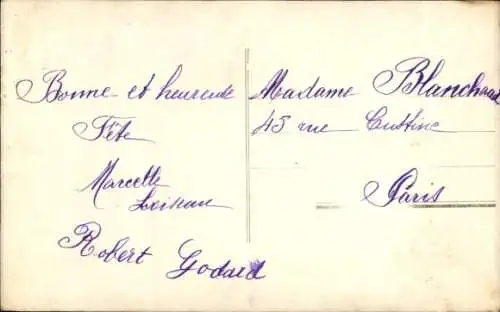 Bonne et heureuse
Fête
Marcelle
Loiseau
Robert Godard
Madame Blanchard
45 rue Custine
Paris